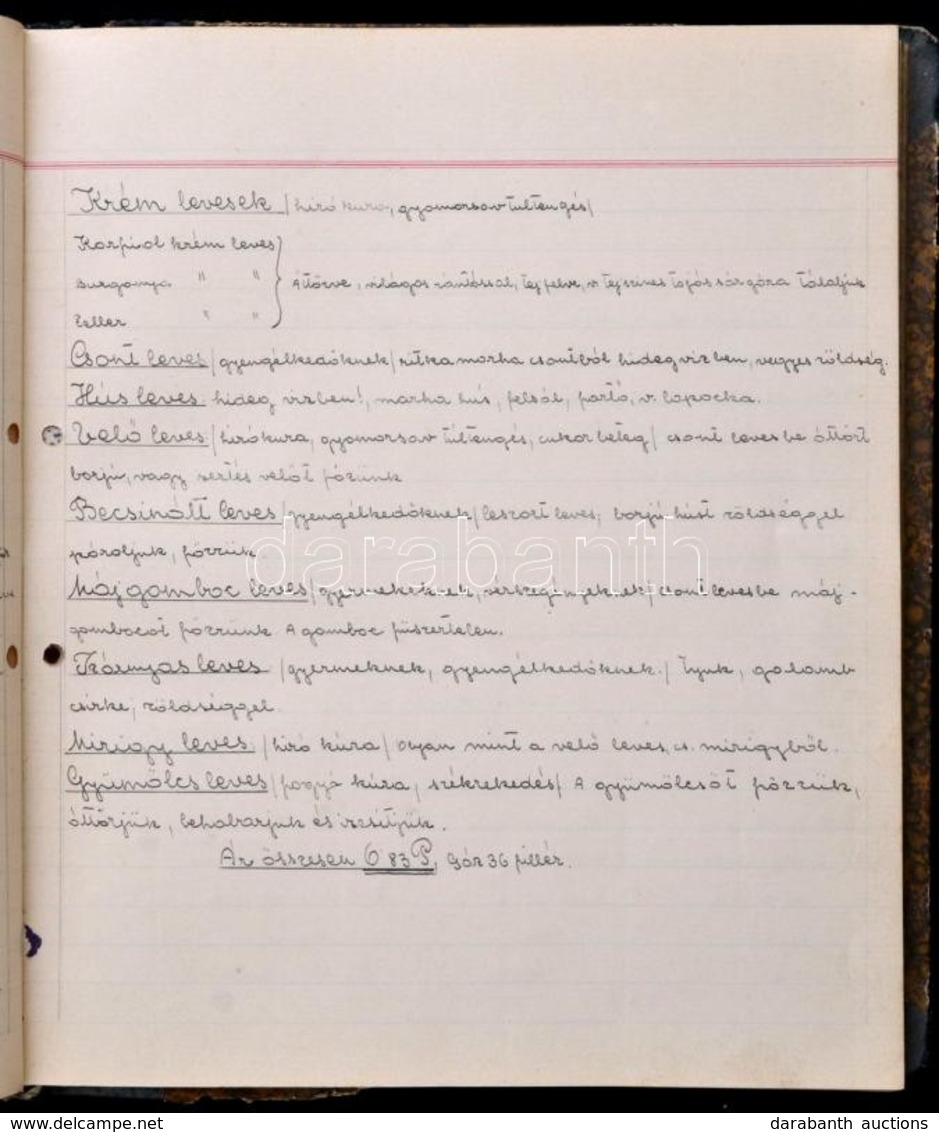 Krém levesek /hízó kura, gyomorsav tultengés/
Karfiol krém leves
Burgonya " "
Zeller " "
Áttörve, világos rántással, tej felve, v. tejszines tojás sárgára tálaljuk
Csont leves /gyengélkedőknek/ ritka marha csontból hideg vizben, vegyes zöldség.
Hús leves hideg vizben!, marha hús, felsál, partó, v. lapocka.
Velő leves /hízókura, gyomorsav túltengés, cukor beteg/ csont levesbe áttört
borjú, vagy sertés velőt főzünk
Becsinált leves /gyengélkedőknek/ leszort leves, borjú húst zöldséggel
pároljuk, főzzük
Májgomboc leves /gyermekeknek, vérszegényeknek/ csont levesbe máj-
gombocot főzünk. A gomboc füszertelen.
Szárnyas leves /gyermeknek, gyengélkedőknek./ Tyuk, galamb
csirke, zöldséggel
Mirigy leves /hízó kúra/ Olyan mint a velő leves, cs. mirigyből.
Gyümölcs leves /fogyó kúra, székrekedés/ A gyümölcsöt főzzük,
áttörjük, behabarjuk és izesitjük.
Ár összesen 0 83 P, Gáz 36 fillér.
darabanth
delcampe.net
darabanth auctions